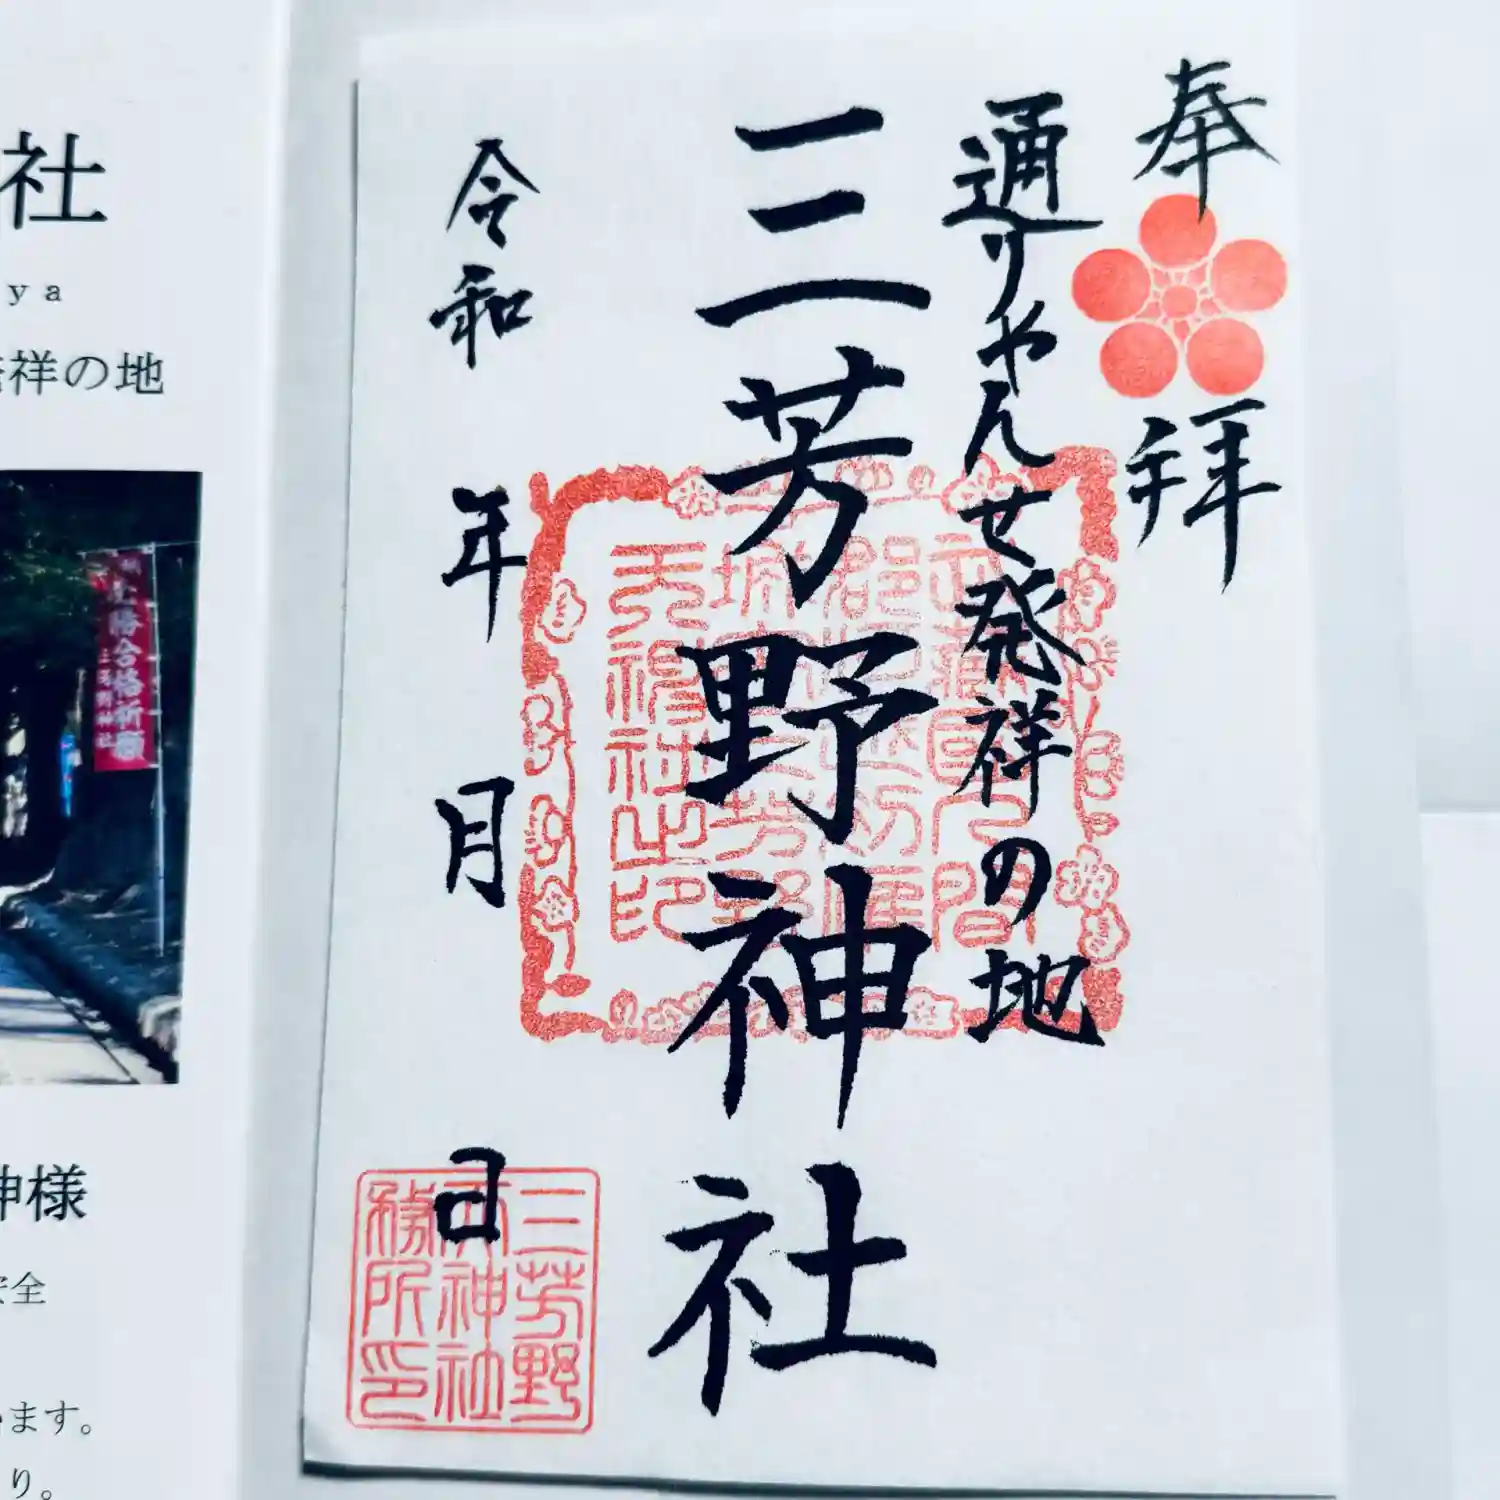 奉拝
通りゃんせ発祥の地
三芳野神社
令和 年 月 日
三芳野
天神社
務所印
天神社之印
社
ya
祥の地
合格祈願
三芳野神社
神様
安全
ます。
り。